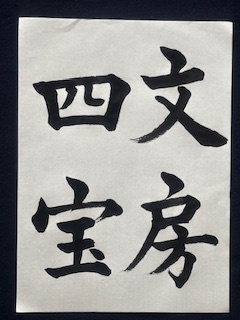 文房
四宝